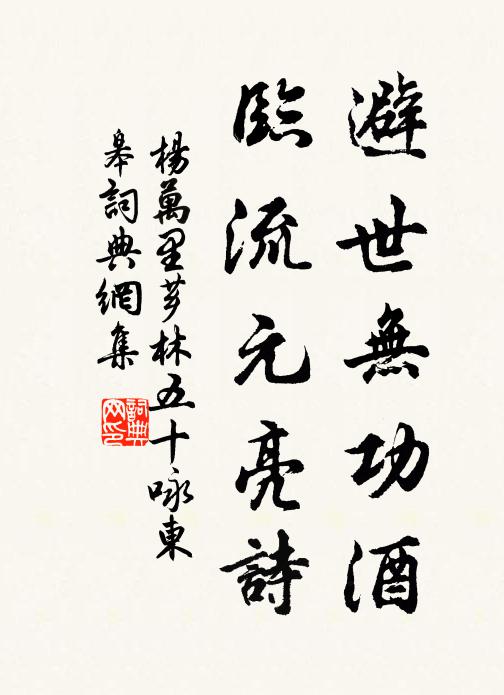 避世無功酒
臨流元亮詩
楊萬里芗林五十咏東
皋詞典網集
詞典网印